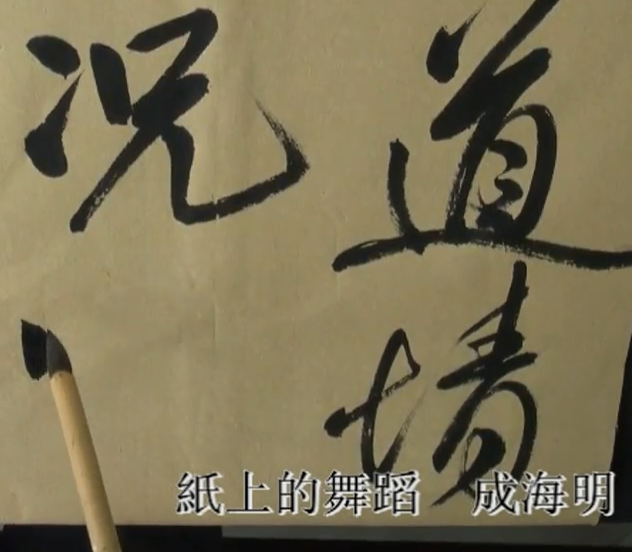 道
况
紙上的舞蹈 成海明